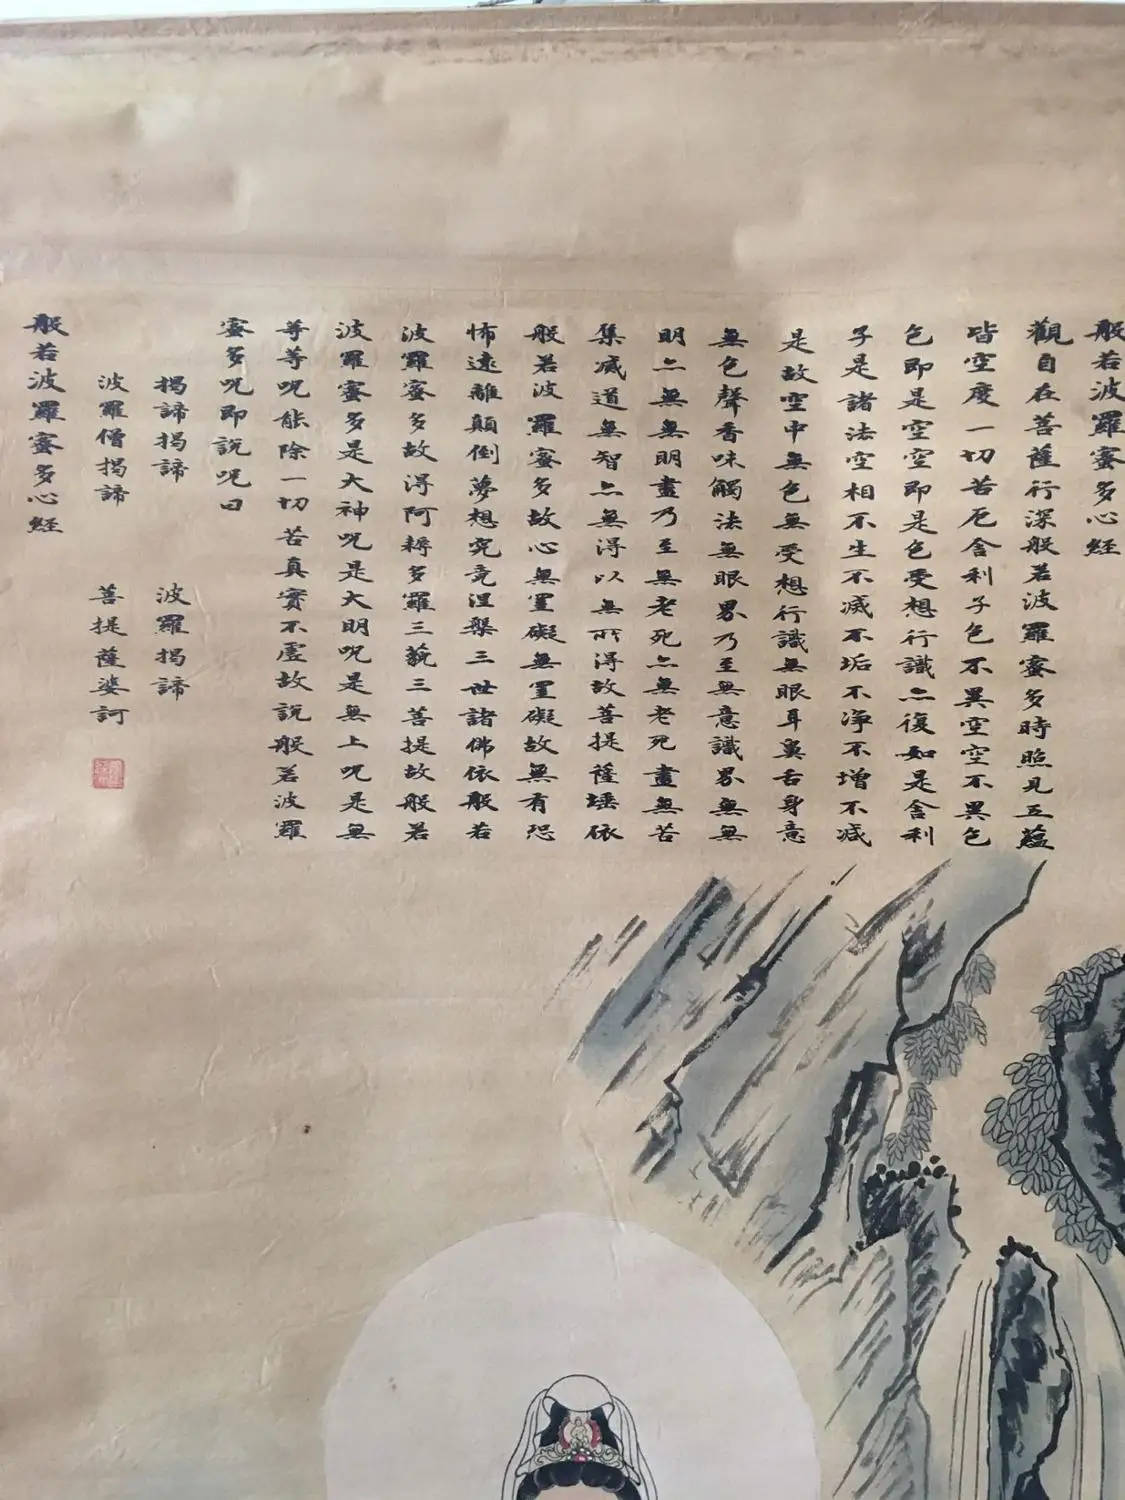 般若波羅蜜多心経
觀自在菩薩行深般若波羅蜜多時照見五蘊
皆空度一切苦厄舍利子色不異空空不異色
色即是空空即是色受想行識亦復如是舍利
子是諸法空相不生不滅不垢不淨不增不減
是故空中無色無受想行識無眼耳鼻舌身意
無色聲香味觸法無眼界乃至無意識界無無
明亦無無明盡乃至無老死亦無老死盡無苦
集滅道無智亦無得以無所得故菩提薩埵依
般若波羅蜜多故心無罣礙無罣礙故無有恐
怖遠離顛倒夢想究竟涅槃三世諸佛依般若
波羅蜜多故得阿耨多羅三藐三菩提故般若
波羅蜜多是大神呪是大明呪是無上呪是無
等等呪能除一切苦真實不虛故説般若波羅
蜜多呪即説呪曰
揭諦揭諦 波羅揭諦
波羅僧揭諦 菩提薩婆訶
般若波羅蜜多心経